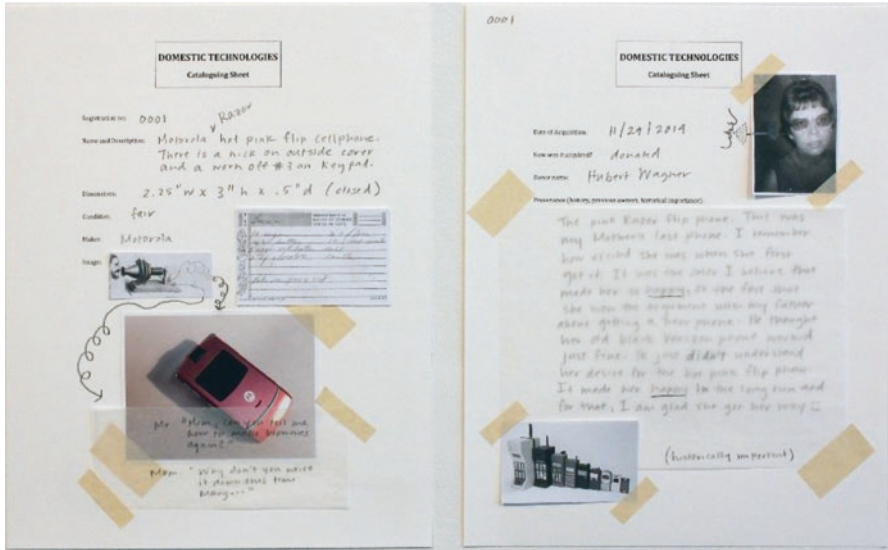 DOMESTIC TECHNOLOGIES
Cataloguing Sheet
Registration no: 0001
Razor
Name and Description: Motorola hot pink flip cellphone.
There is a nick on outside cover
and a worn off #3 on keypad.
Dimensions: 2.25" w x 3" h x .5" d (closed)
Condition: fair
Maker: Motorola
Images:
Me: "Mom, can you tell me
how to make brownies
again?"
Mom: "Why don't you write
it down this time
0001
DOMESTIC TECHNOLOGIES
Cataloguing Sheet
Date of Acquisition: 11/29/2014
How was it acquired? donated
Donor name: Hubert Wagner
Provenance (history, previous owners, historical importance)
The pink Razor flip phone. That was
my Mother's last phone. I remember
how excited she was when she first
got it. It was the color I believe that
made her so happy. Or the fact that
she won the argument with my father
about getting a new phone. He thought
her old black Verizon phone worked
just fine. He just didn't understand
her desire for the hot pink flip phone.
It made her happy in the long run and
for that, I am glad she got her way
(historically important)